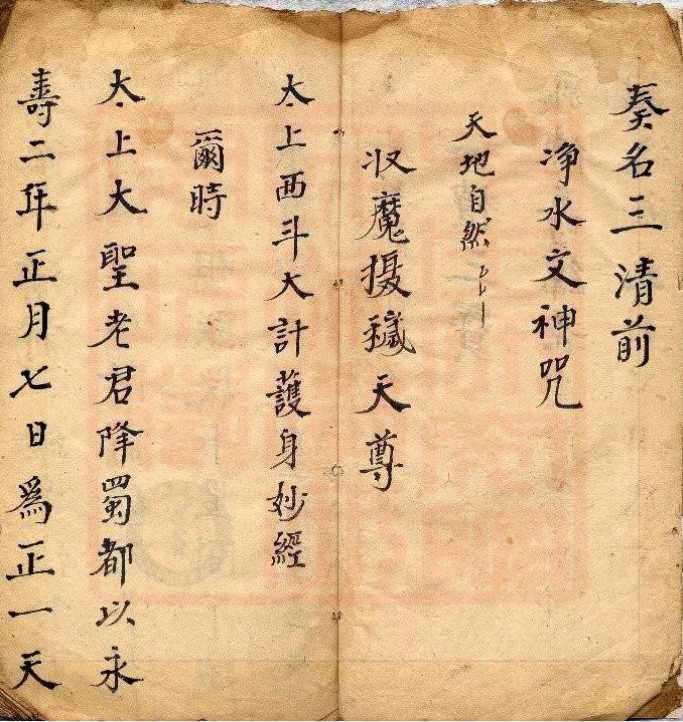 奏名三清前
净水文神咒
天地自然
收魔摄穢天尊
太上西斗大計護身妙經
爾時
太上大聖老君降蜀都以永
壽二年正月七日爲正一天